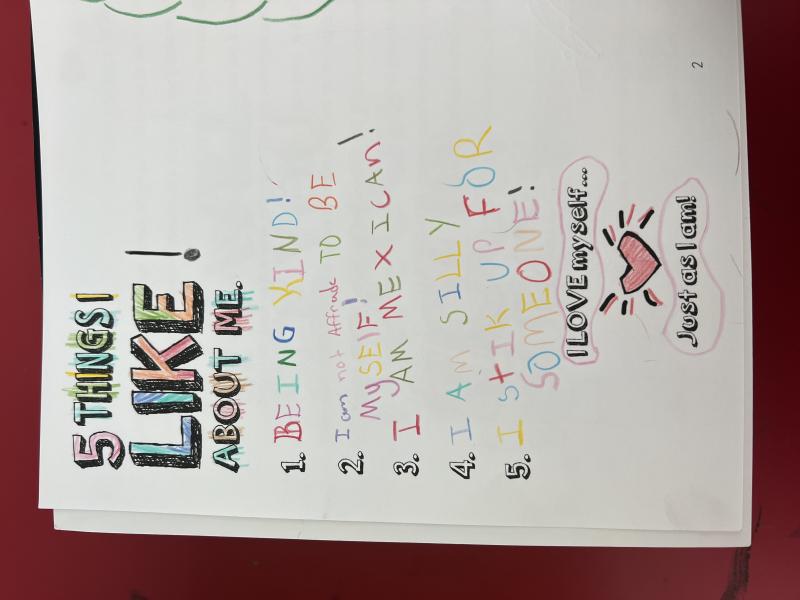 5 THINGS I
LIKE!
ABOUT ME.
1. BEING KIND!
2. I am not Affrade TO BE
MySElF!
3. I AM MEXICAn!
4. I AM SILLY
5. I stIK UP FOR
SOMEONE!
I LOVE myself...
Just as I am!
2